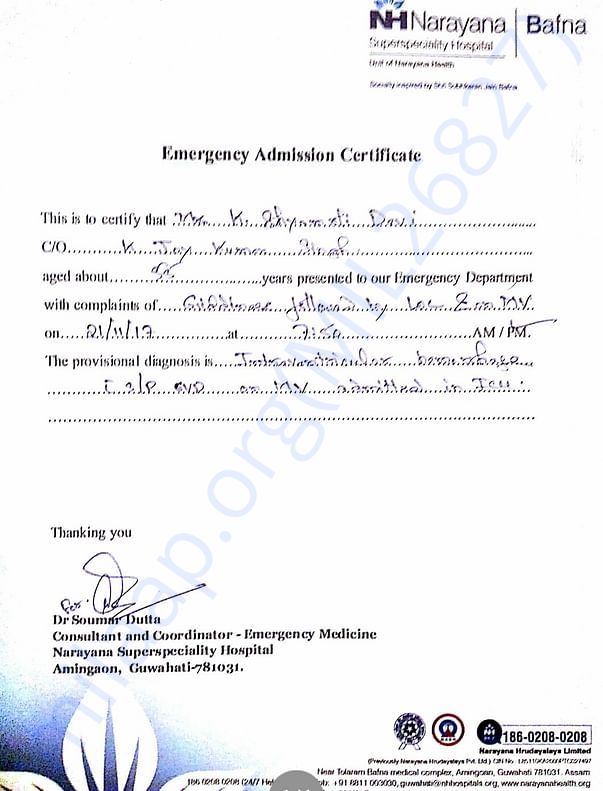 NH Narayana | Bafna
Superspeciality Hospital
Unit of Narayana Health
Socially inspired by Shri Subhkaran Jain Bafna
Emergency Admission Certificate
This is to certify that Mrs. K. Shyamati Devi
C/O K. Joy Kumar Singh
aged about years presented to our Emergency Department
with complaints of Giddiness followed by
on 21/11/17 at 7:50 AM / PM.
The provisional diagnosis is Intraventricular hemorrhage
S/P EVD on MV admitted in ICU.
Thanking you
Dr Soumar Dutta
Consultant and Coordinator - Emergency Medicine
Narayana Superspeciality Hospital
Amingaon, Guwahati-781031.
186-0208-0208
Narayana Hrudayalaya Limited
(Previously Narayana Hrudayalaya Pvt. Ltd.) CIN No.
Near Tolaram Bafna medical complex, Amingaon, Guwahati 781031. Assam
186 0208 0208 (24/7 +91 8811 003030, guwahati@nhhospitals.org, www.narayanahealth.org
milaap.org(MIL26827)